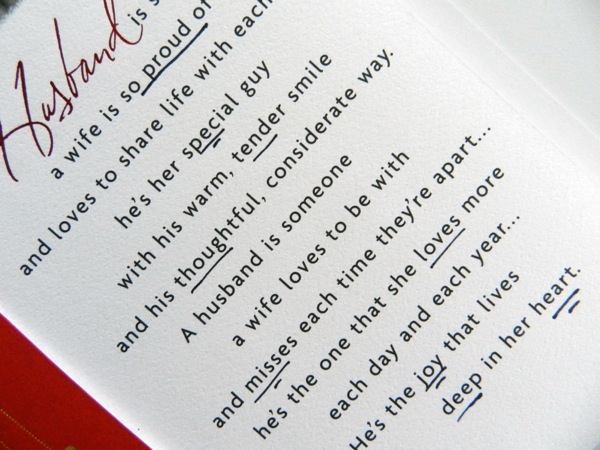 Husband is
a wife is so proud of
and loves to share life with each
he's her special guy
with his warm, tender smile
and his thoughtful, considerate way.
A husband is someone
a wife loves to be with
and misses each time they're apart...
he's the one that she loves more
each day and each year...
He's the joy that lives
deep in her heart.